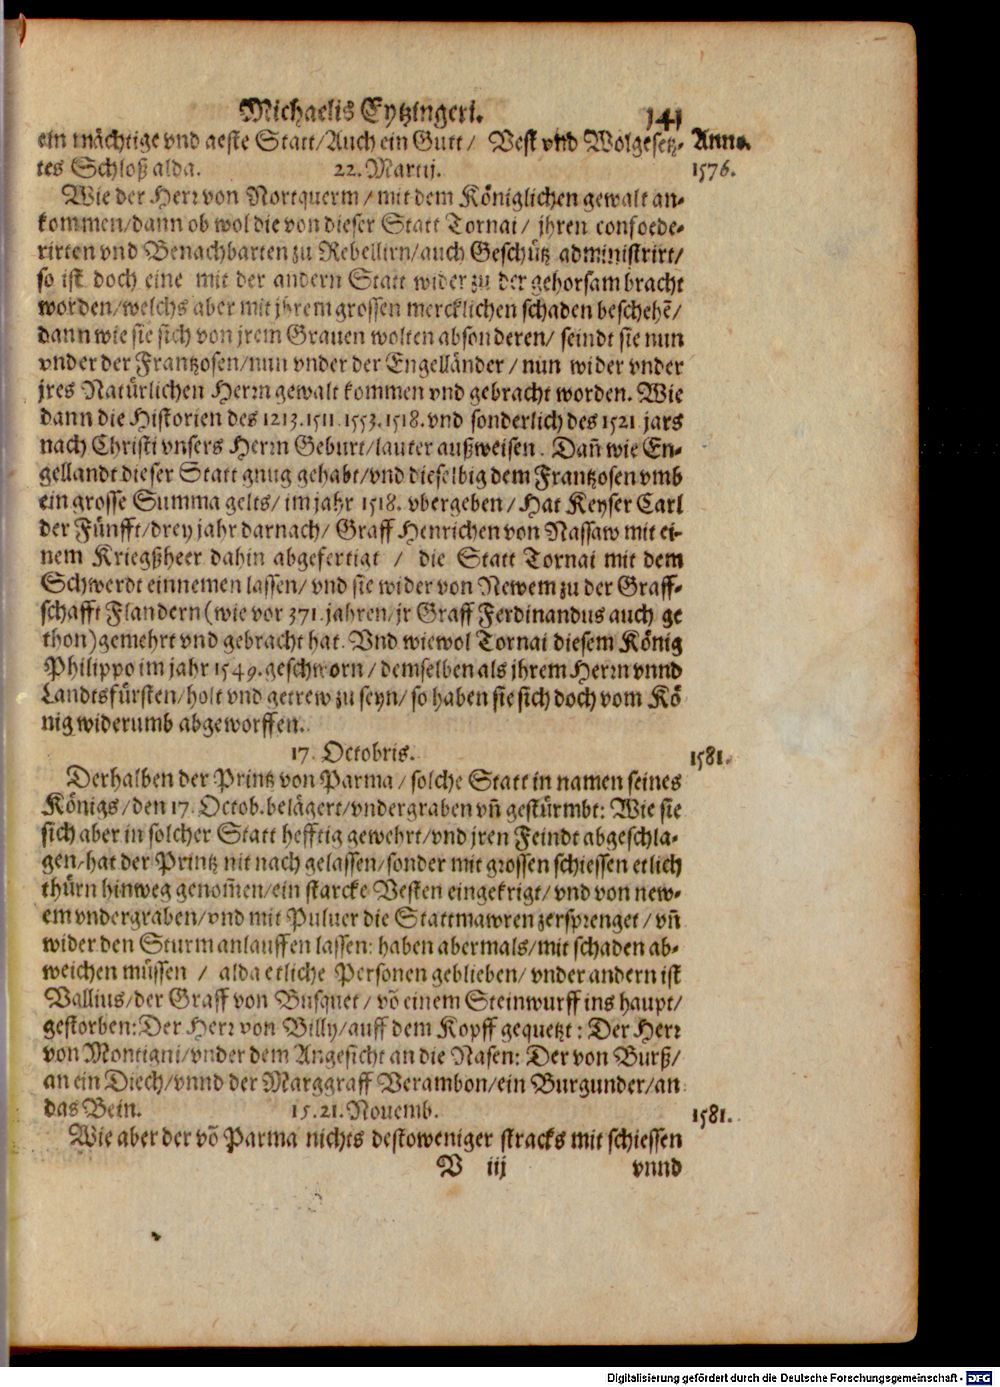 Michaelis Eytzingeri. 141
ein mächtige vnd aeste Statt/Auch ein Gutt/ Vest vnd Wolgesetz- Anno.
tes Schloß alda. 22. Martij. 1576.
Wie der Herr von Nortquerm/mit dem Königlichen gewalt an-
kommen/dann ob wol die von dieser Statt Tornai/ jhren confoede-
rirten vnd Benachbarten zu Rebellirn/auch Geschütz administrirt/
so ist doch eine mit der andern Statt wider zu der gehorsam bracht
worden/welchs aber mit jhrem grossen mercklichen schaden beschehẽ/
dann wie sie sich von jrem Grauen wolten absonderen/ seindt sie nun
vnder der Frantzosen/nun vnder der Engelländer/nun wider vnder
jres Natürlichen Herrn gewalt kommen vnd gebracht worden. Wie
dann die Historien des 1213. 1511. 1553. 1518. vnd sonderlich des 1521 jars
nach Christi vnsers Herrn Geburt/lauter außweisen. Dañ wie En-
gellandt dieser Statt gnug gehabt/vnd dieselbig dem Frantzosen vmb
ein grosse Summa gelts/im jahr 1518. vbergeben/Hat Keyser Carl
der Fünfft/drey jahr darnach/ Graff Henrichen von Nassaw mit ei-
nem Kriegßheer dahin abgefertigt / die Statt Tornai mit dem
Schwerdt einnemen lassen/vnd sie wider von Newem zu der Graff-
schafft Flandern (wie vor 371. jahren/jr Graff Ferdinandus auch ge
thon) gemehrt vnd gebracht hat. Vnd wiewol Tornai diesem König
Philippo im jahr 1549. geschworn/demselben als jhrem Herrn vnnd
Landtsfürsten/holt vnd getrew zu seyn/so haben sie sich doch vom Kö
nig widerumb abgeworffen.
17. Octobris. 1581.
Derhalben der Printz von Parma/solche Statt in namen seines
Königs/den 17. Octob. belägert/vndergraben vñ gestürmbt: Wie sie
sich aber in solcher Statt hefftig gewehrt/vnd jren Feindt abgeschla-
gen/hat der Printz nit nach gelassen/sonder mit grossen schiessen etlich
thürn hinweg genom̃en/ein starcke Vesten eingekrigt/vnd von new-
em vndergraben/vnd mit Puluer die Stattmawren zersprenget/vñ
wider den Sturm anlauffen lassen: haben abermals/mit schaden ab-
weichen müssen / alda etliche Personen geblieben/vnder andern ist
Vallius/der Graff von Busquet/võ einem Steinwurff ins haupt/
gestorben: Der Herr von Billy/auff dem Kopff gequetzt: Der Herr
von Montigni/vnder dem Angesicht an die Nasen: Der von Burß/
an ein Diech/vnnd der Marggraff Verambon/ein Burgunder/an
das Bein. 15. 21. Nouemb. 1581.
Wie aber der võ Parma nichts destoweniger stracks mit schiessen
V iij vnnd
Digitalisierung gefördert durch die Deutsche Forschungsgemeinschaft - DFG